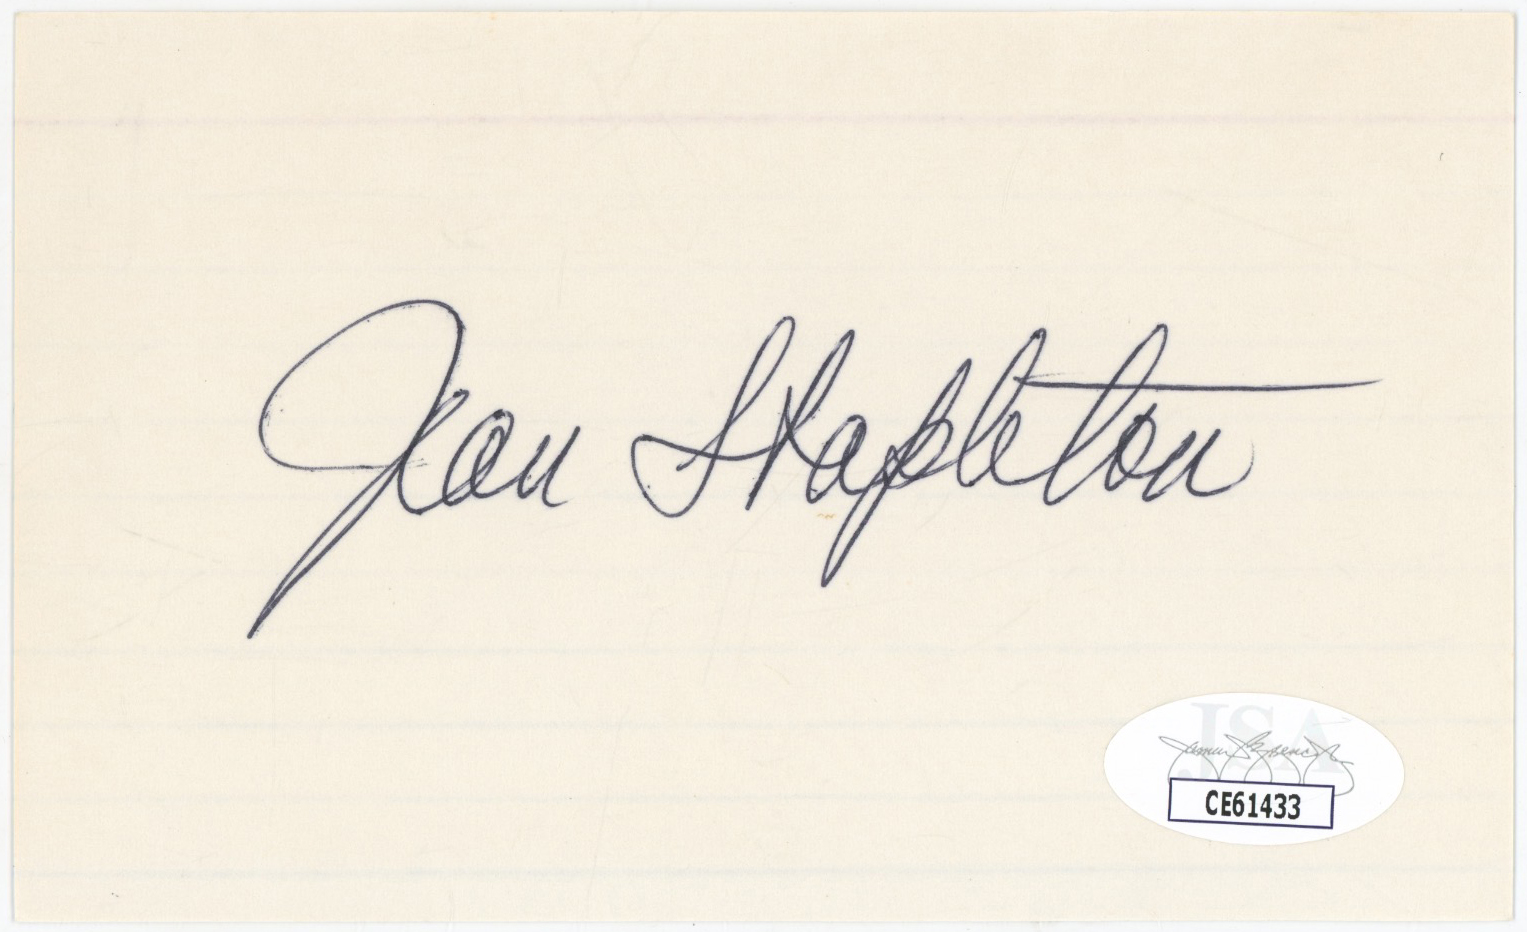 Jean Stapleton
JSA
CE61433